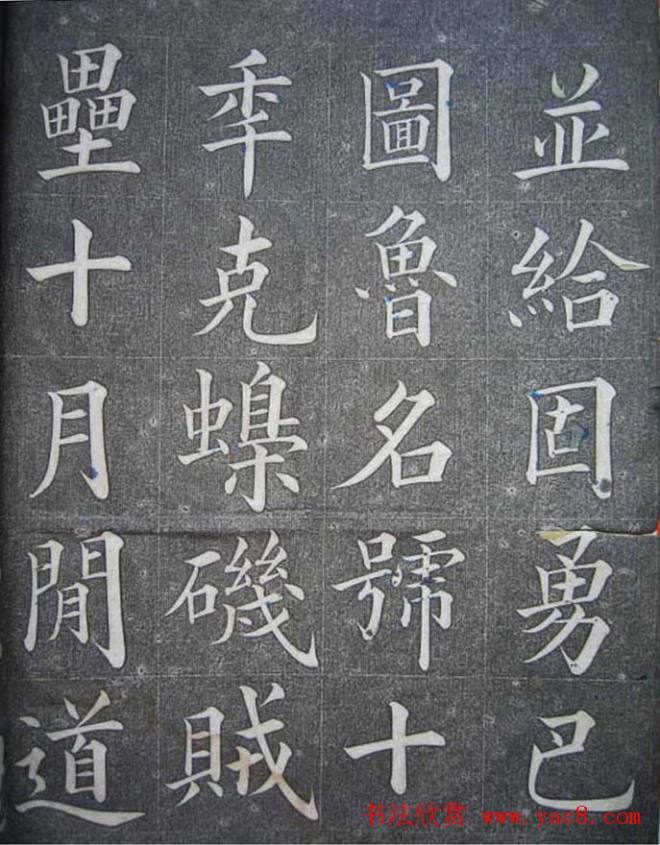 並給固勇巴
圖魯名號十
年克蟂磯賊
壘十月閒道
书法欣赏 www.yac8.com